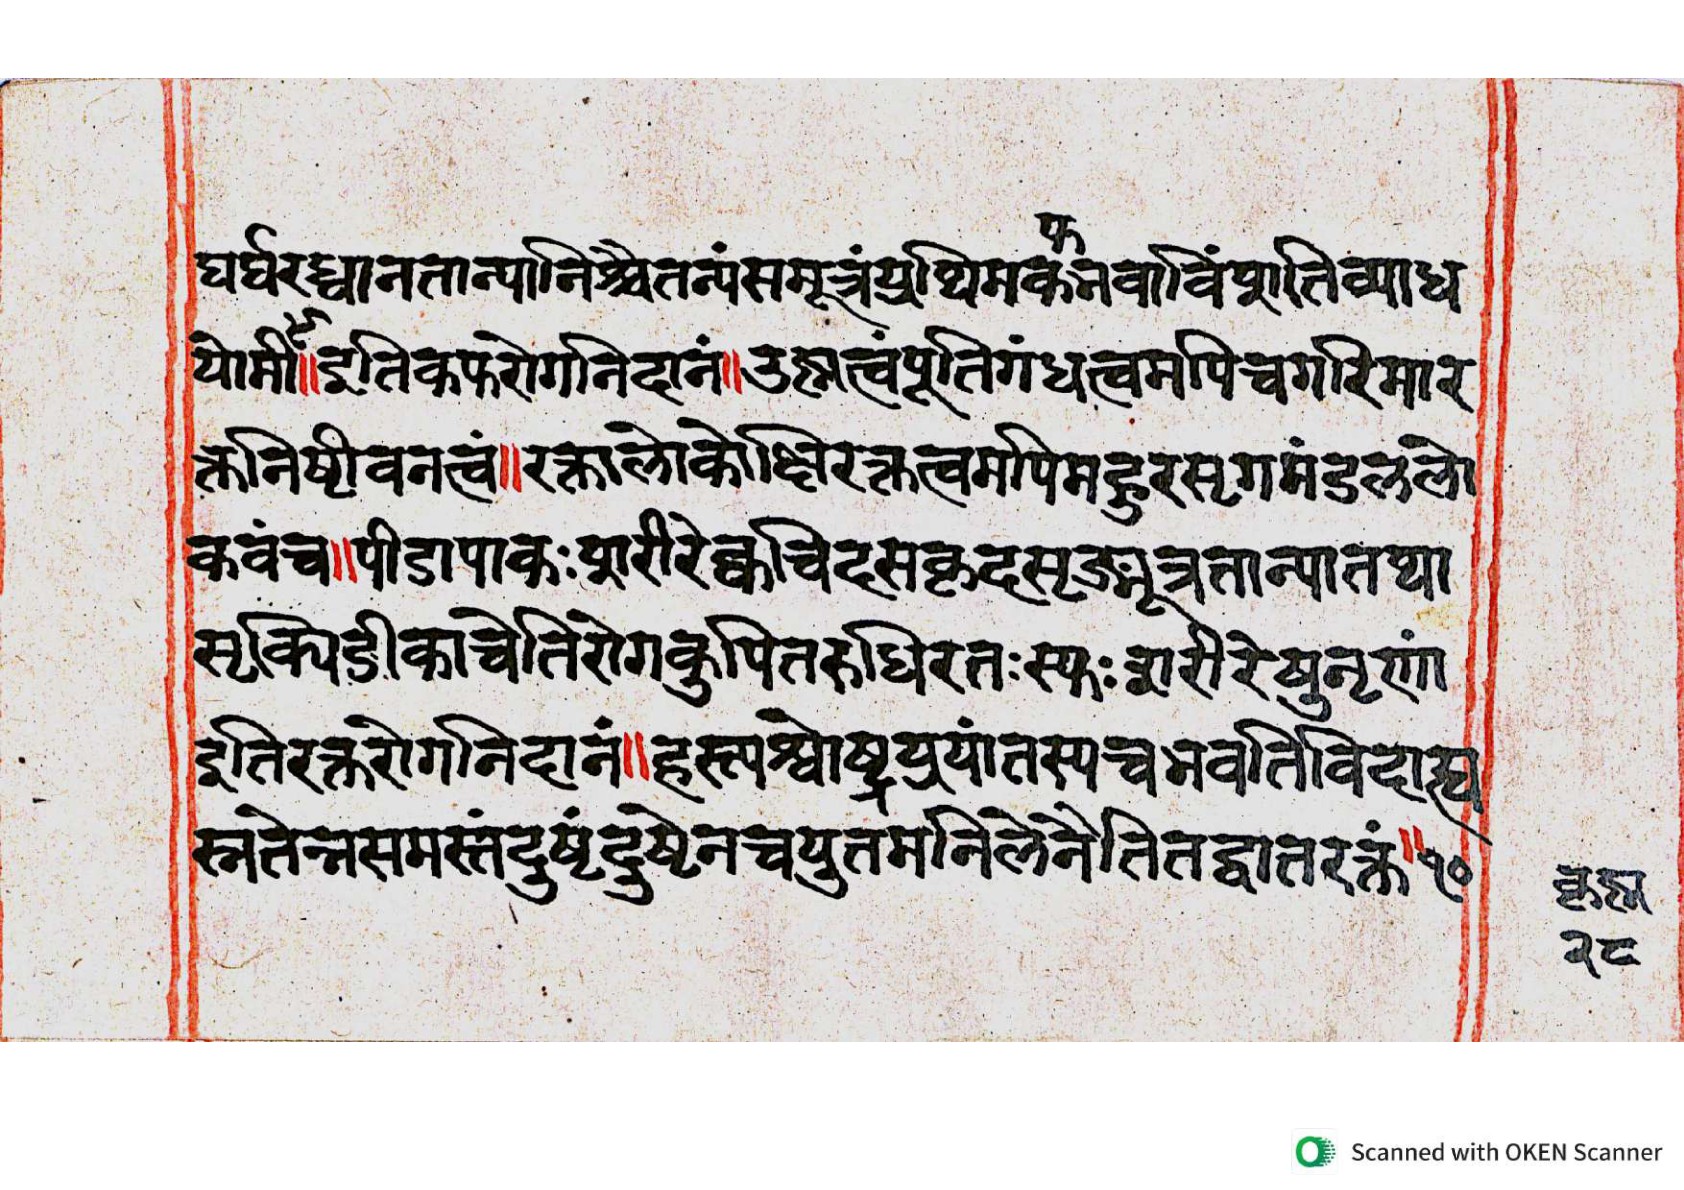 फ
घर्घरध्वानतान्यानिश्चैतन्यंसमूत्रंप्रथिमकनवाविंशतिव्याध
योमी॥इतिकफरोगनिदानं॥उष्णत्वंपूतिगंधत्वमपिचगरिमार
क्तनिष्ठीवनत्वं॥रक्तालोकोक्षिरक्तत्वमपिमदुरसृगमंडलालो
कवंच॥पीडापाकःशरीरेक्वचिदसकृदसृङ्मूत्रतान्यातथा
सृक्पिडीकाचेतिरोगकुपितरुधिरतःस्फःशरीरेषुनृणां
इतिरक्तरोगनिदानं॥हस्त्यश्वोष्ट्रप्रयांतस्यचभवतिविदाह्य
स्नतेन्नसमस्तंदुष्टंदुष्टेनचयुतमनिलेनैतितद्वातरक्तं॥१०
कृष्ण
२८
Scanned with OKEN Scanner